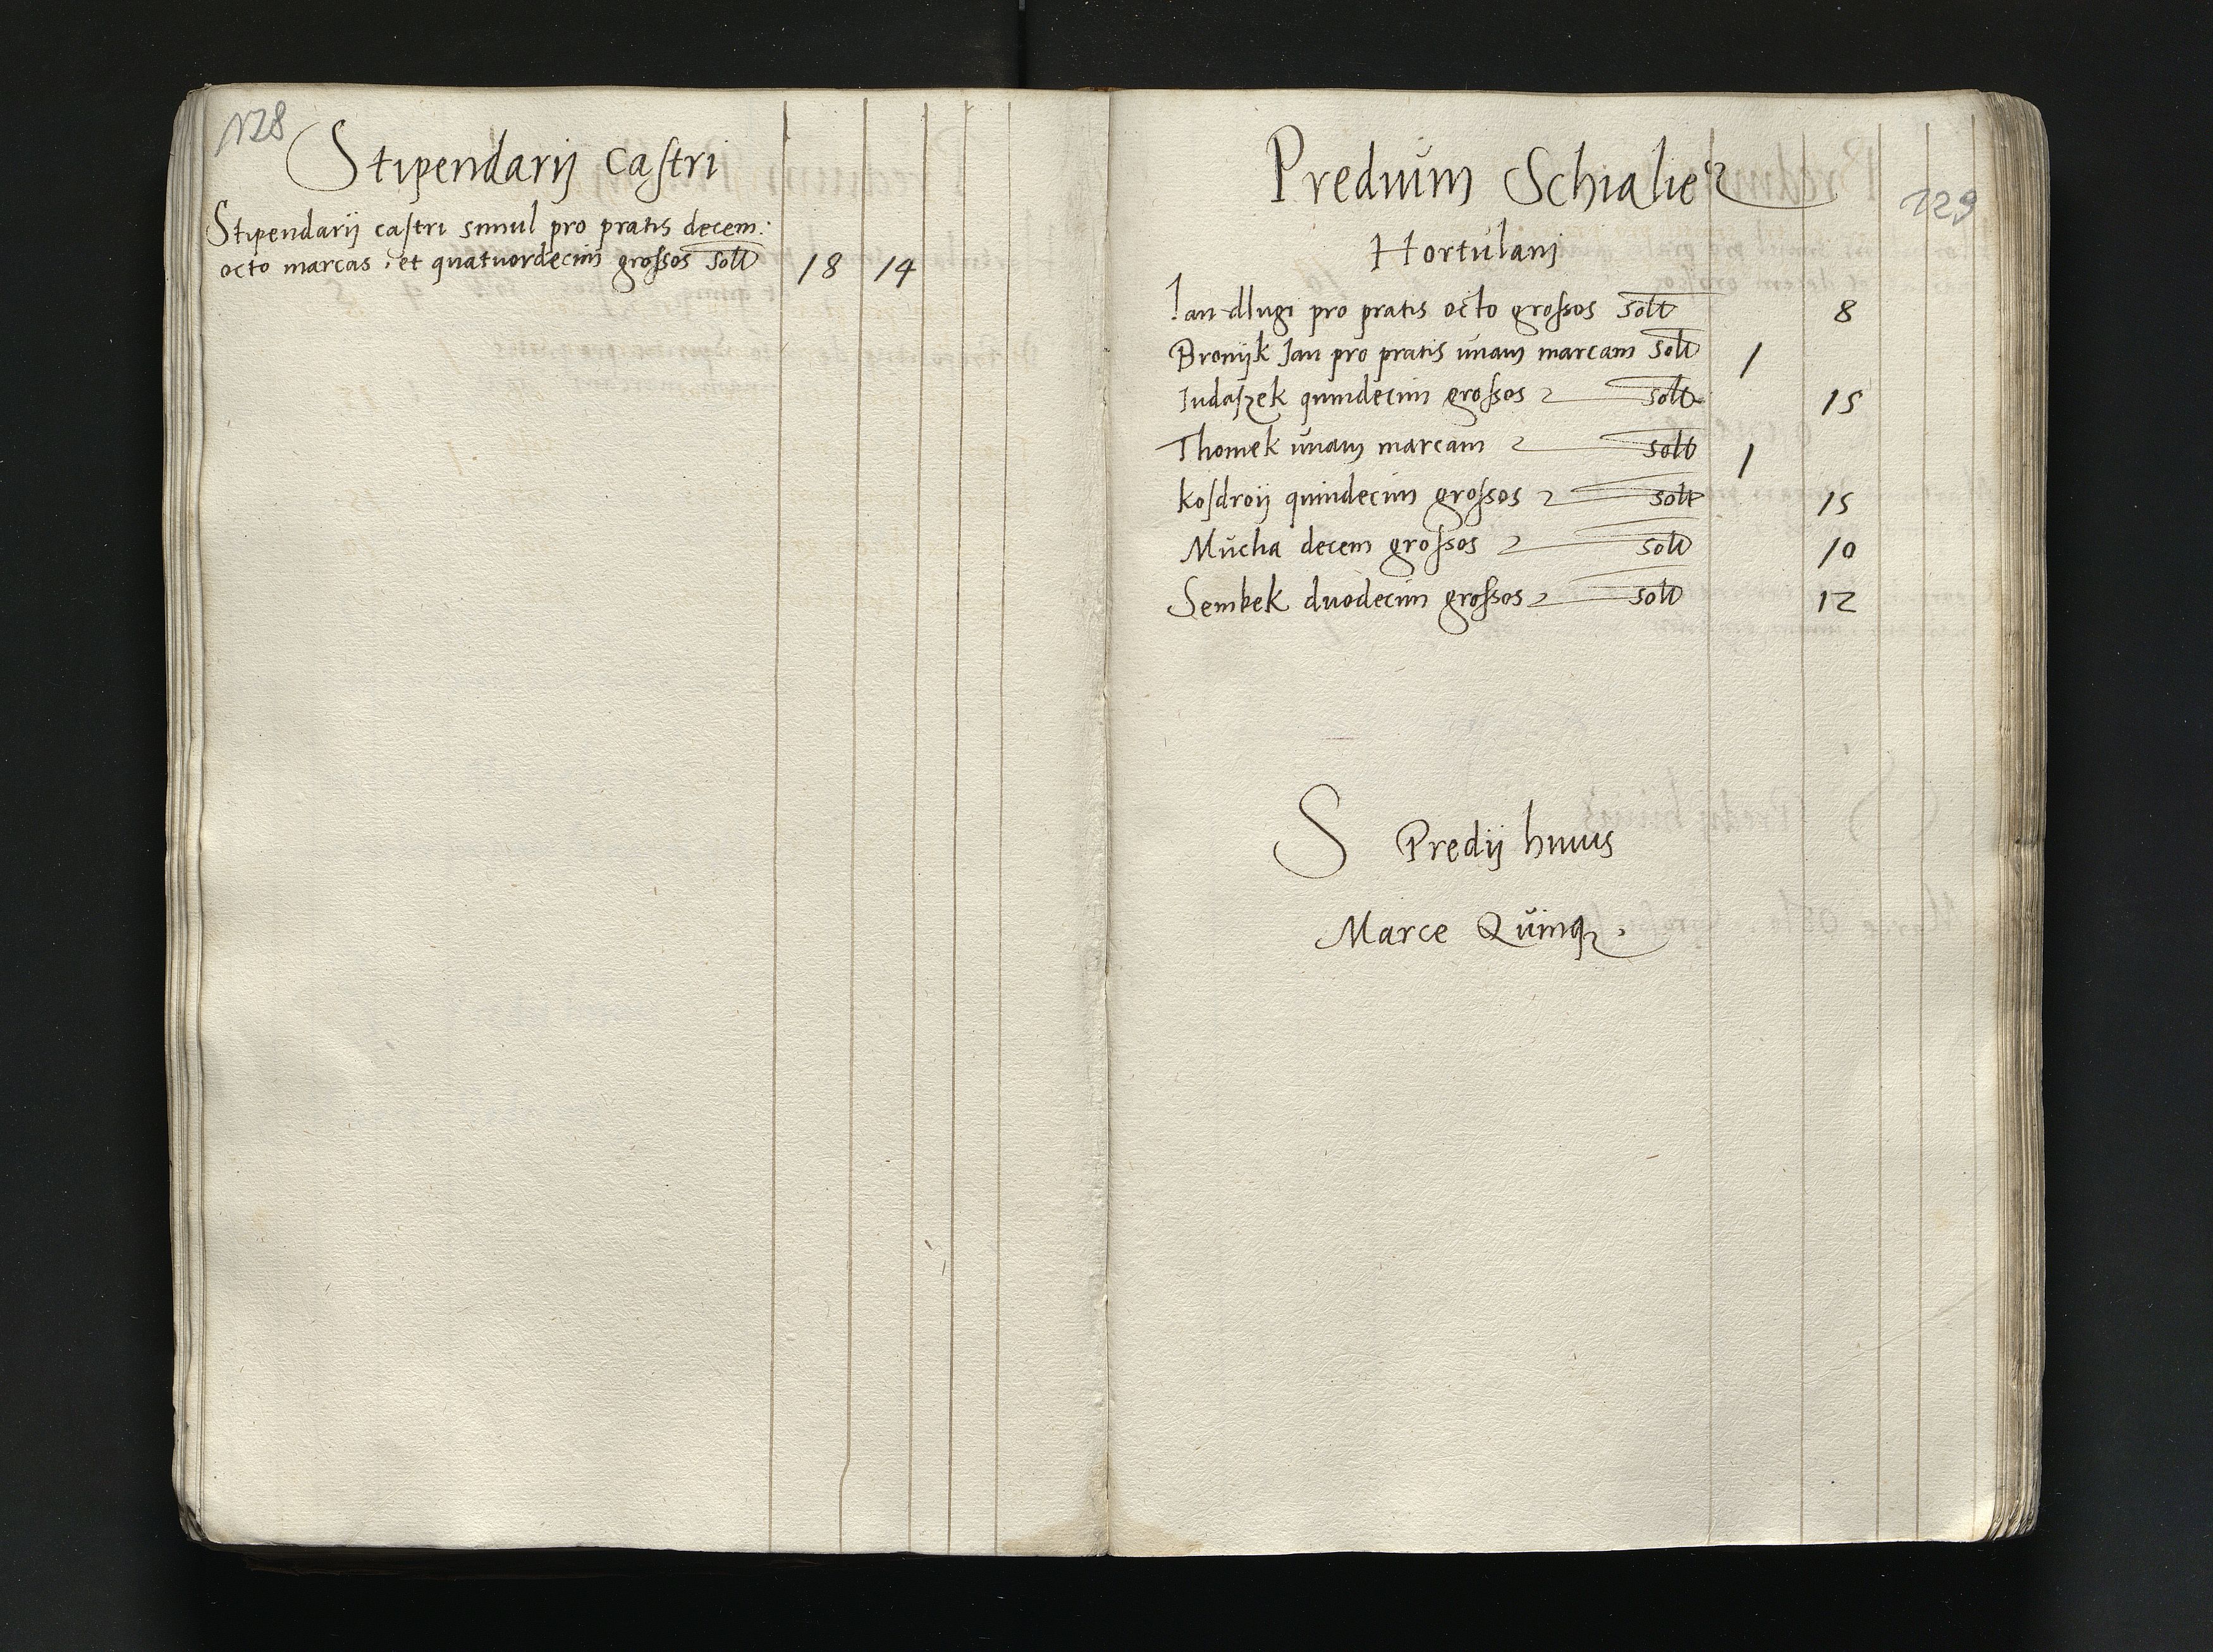 128
Stipendarij castri
Stipendarij castri simul pro pratis decem:
octo marcas et quatuordecim grossos solt 18 14
129
Predium Schialie
Hortulanj
Jan dlugi pro pratis octo grossos solt 8
Bronijk Jan pro pratis unam marcam solt 1
Judaszek quindecim grossos solt 15
Thomek unam marcam solt 1
kosdroij quindecim grossos solt 15
Mucha decem grossos solt 10
Sembek duodecim grossos solt 12
S Predij huius
Marce Quinq.